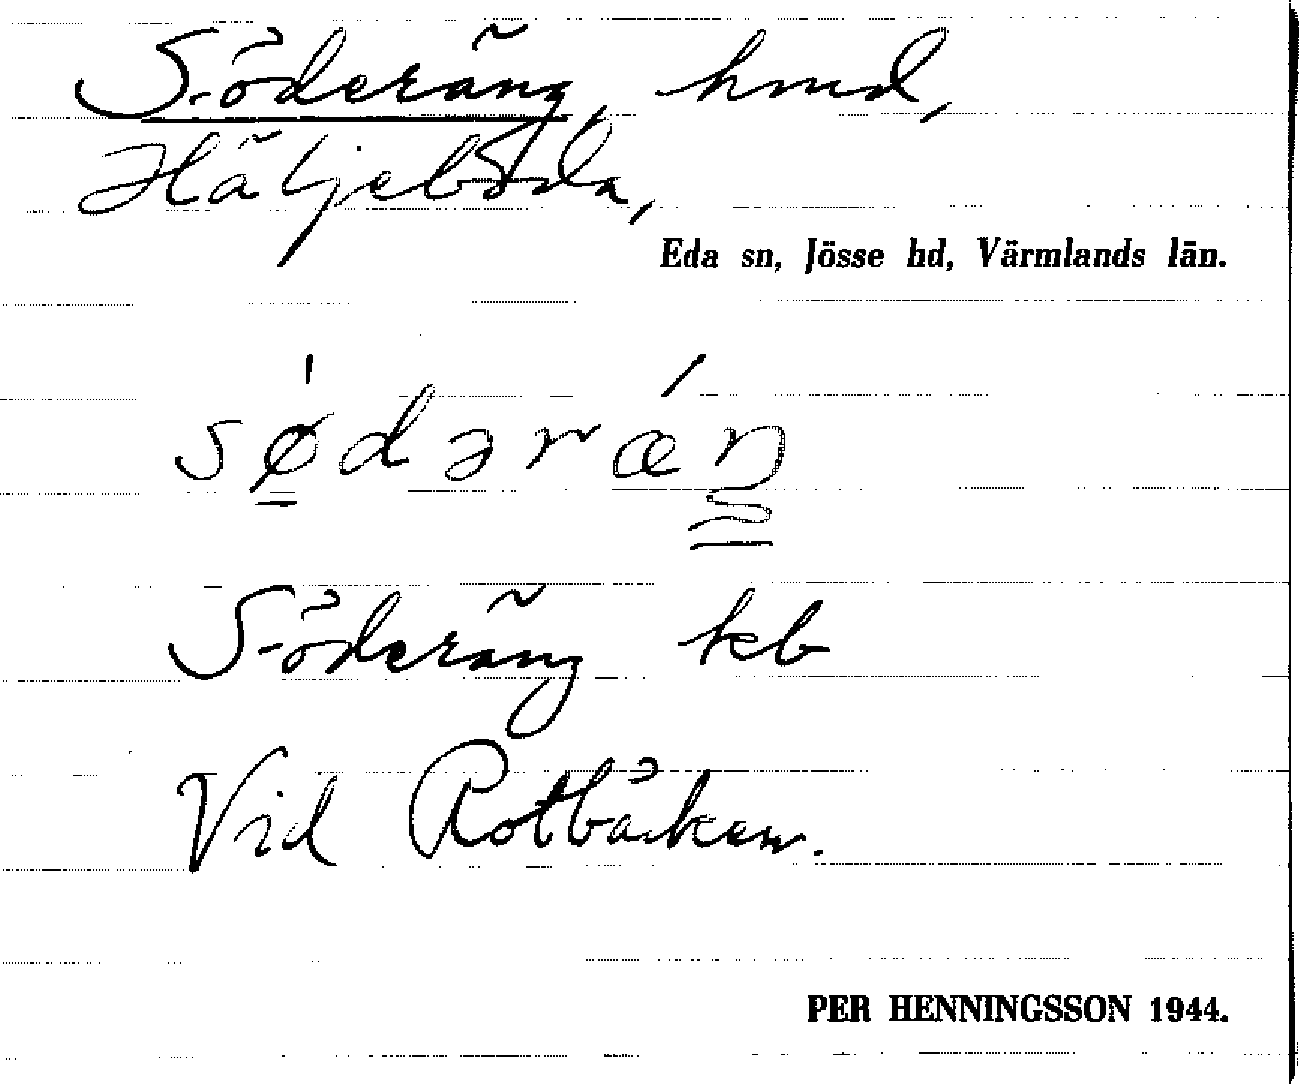 Söderäng, hmd,
Häljeboda,
Eda sn, Jösse hd, Värmlands län.
sødəræŋ
Söderäng kb
Vid Rotbäcken.
PER HENNINGSSON 1944.